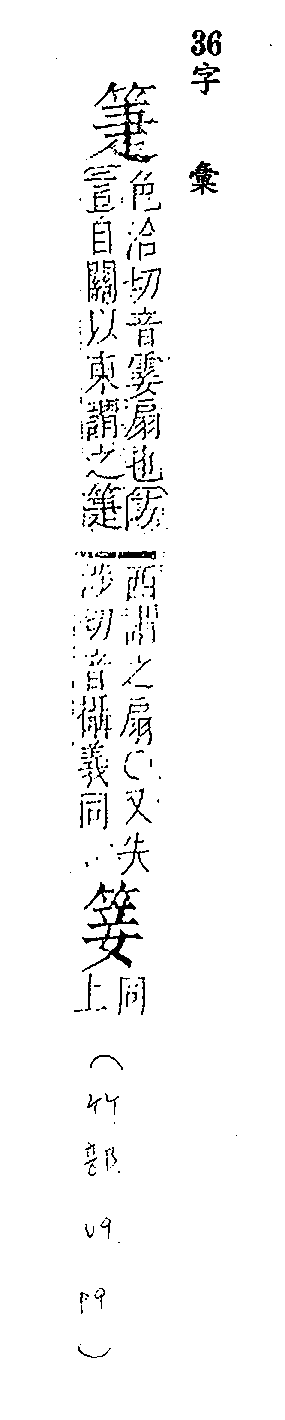 36 字彙
箑
色洽切音霎扇也方
言自關以東謂之箑
西謂之扇〇又失
涉切音攝義同
同
上
(竹部